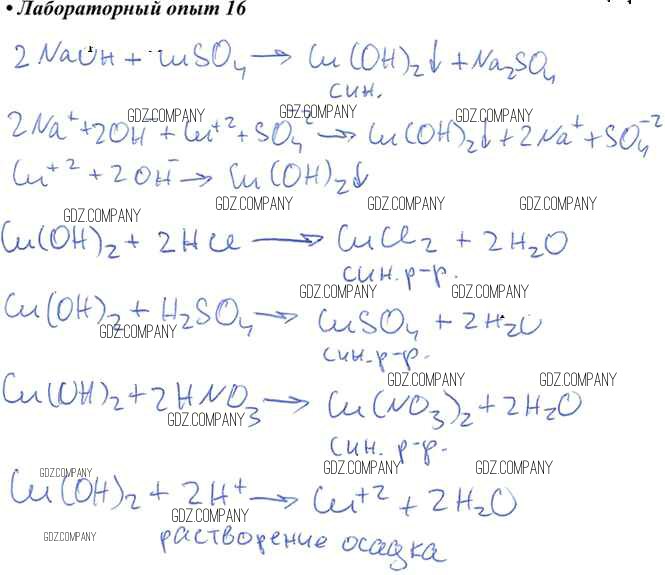 • Лабораторный опыт 16
2NaOH + CuSO₄ → Cu(OH)₂↓ + Na₂SO₄
син.
GDZ.COMPANY GDZ.COMPANY GDZ.COMPANY
2Na⁺ + 2OH⁻ + Cu⁺² + SO₄⁻² → Cu(OH)₂↓ + 2Na⁺ + SO₄⁻²
Cu⁺² + 2OH⁻ → Cu(OH)₂↓
GDZ.COMPANY GDZ.COMPANY GDZ.COMPANY GDZ.COMPANY
Cu(OH)₂ + 2HCl → CuCl₂ + 2H₂O
син. р-р.
GDZ.COMPANY GDZ.COMPANY
Cu(OH)₂ + H₂SO₄ → CuSO₄ + 2H₂O
GDZ.COMPANY
син. р-р.
GDZ.COMPANY GDZ.COMPANY
Cu(OH)₂ + 2HNO₃ → Cu(NO₃)₂ + 2H₂O
GDZ.COMPANY
син. р-р.
GDZ.COMPANY GDZ.COMPANY GDZ.COMPANY
Cu(OH)₂ + 2H⁺ → Cu⁺² + 2H₂O
GDZ.COMPANY
GDZ.COMPANY растворение осадка